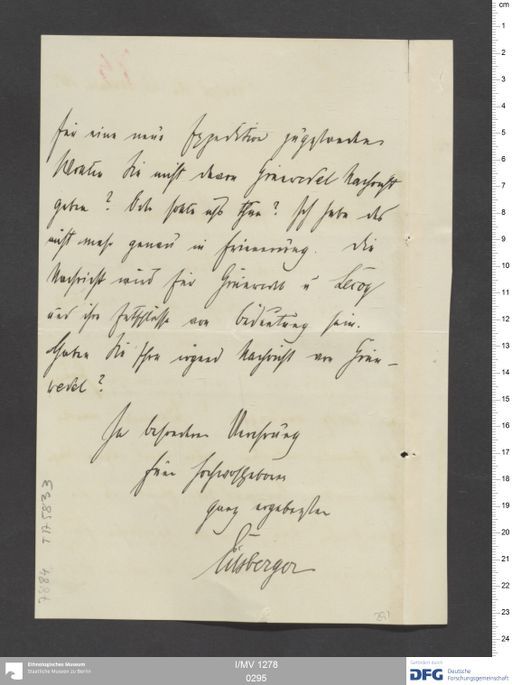 für eine neue Expedition zugestanden.
Wollten Sie nicht davon Grünwedel Nachricht
geben? Oder sollte ich's thun? Ich habe das
nicht mehr genau in Erinnerung. Die
Nachricht wird für Grünwedel u Lecoq
und ihre Entschlüsse von Bedeutung sein.
Haben Sie schon irgend Nachricht von Grün-
wedel?
In besonderer Verehrung
Euer Hochwohlgeboren
ganz ergebenster
Pilsberger
7884 TA 5833
291
cm
1
2
3
4
5
6
7
8
9
10
11
12
13
14
15
16
17
18
19
20
21
22
23
24
Ethnologisches Museum
Staatliche Museen zu Berlin
I/MV 1278
0295
Gefördert durch
DFG Deutsche
Forschungsgemeinschaft